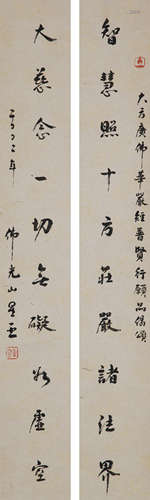 大方廣佛華嚴經普賢行願品偈頌
智慧照十方莊嚴諸法界
大慈念一切無礙如虛空
二〇〇二年
佛光山星云